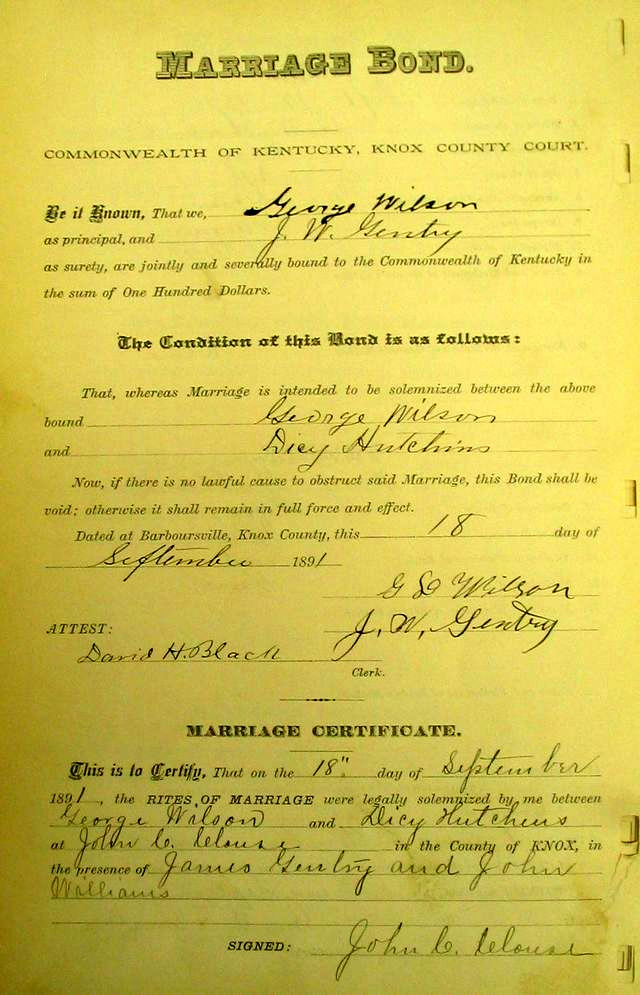 MARRIAGE BOND.
COMMONWEALTH OF KENTUCKY, KNOX COUNTY COURT.
Be it Known, That we, George Wilson
as principal, and J. W. Gentry
as surety, are jointly and severally bound to the Commonwealth of Kentucky in
the sum of One Hundred Dollars.
The Condition of this Bond is as follows:
That, whereas Marriage is intended to be solemnized between the above
bound George Wilson
and Dicy Hutchins
Now, if there is no lawful cause to obstruct said Marriage, this Bond shall be
void; otherwise it shall remain in full force and effect.
Dated at Barboursville, Knox County, this 18 day of
September 1891
G D Wilson
J. W. Gentry
ATTEST:
David H. Black
Clerk.
MARRIAGE CERTIFICATE.
This is to Certify, That on the 18" day of September
1891, the RITES OF MARRIAGE were legally solemnized by me between
George Wilson and Dicy Hutchens
at John C. Clouse in the County of KNOX, in
the presence of James Gentry and John
Williams
SIGNED: John C. Clouse